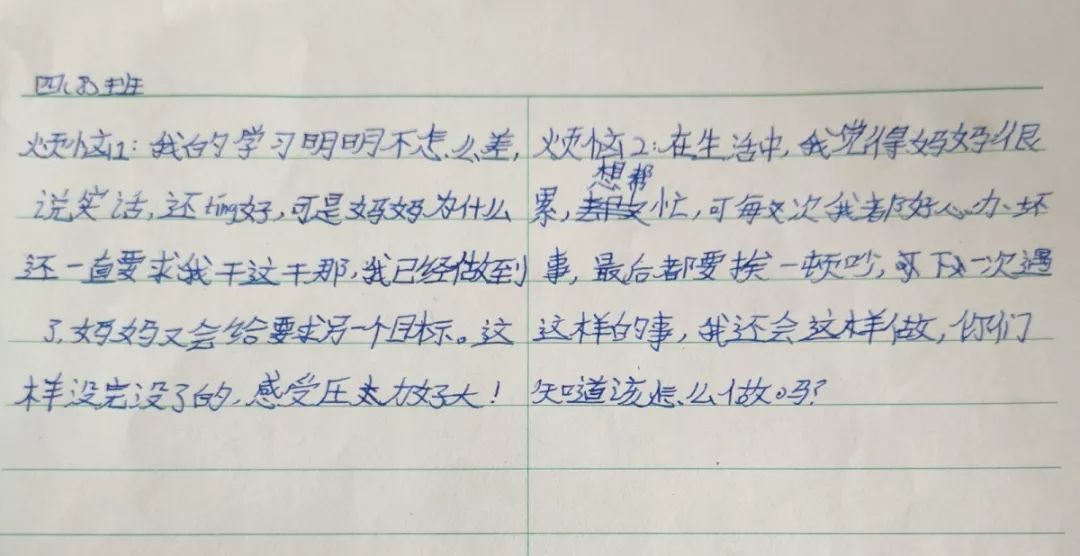 四(8)班
烦恼1：我的学习明明不怎么差，
说笑话，还ting好，可是妈妈为什么
还一直要求我干这干那，我已经做到
了，妈妈又会给要求另一个目标。这
样没完没了的，感受压力好大！
烦恼2：在生活中，我觉得妈妈很
累，想帮忙，可每次我都好心办坏
事，最后都要挨一顿吵，可下一次遇
这样的事，我还会这样做，你们
知道该怎么做吗？